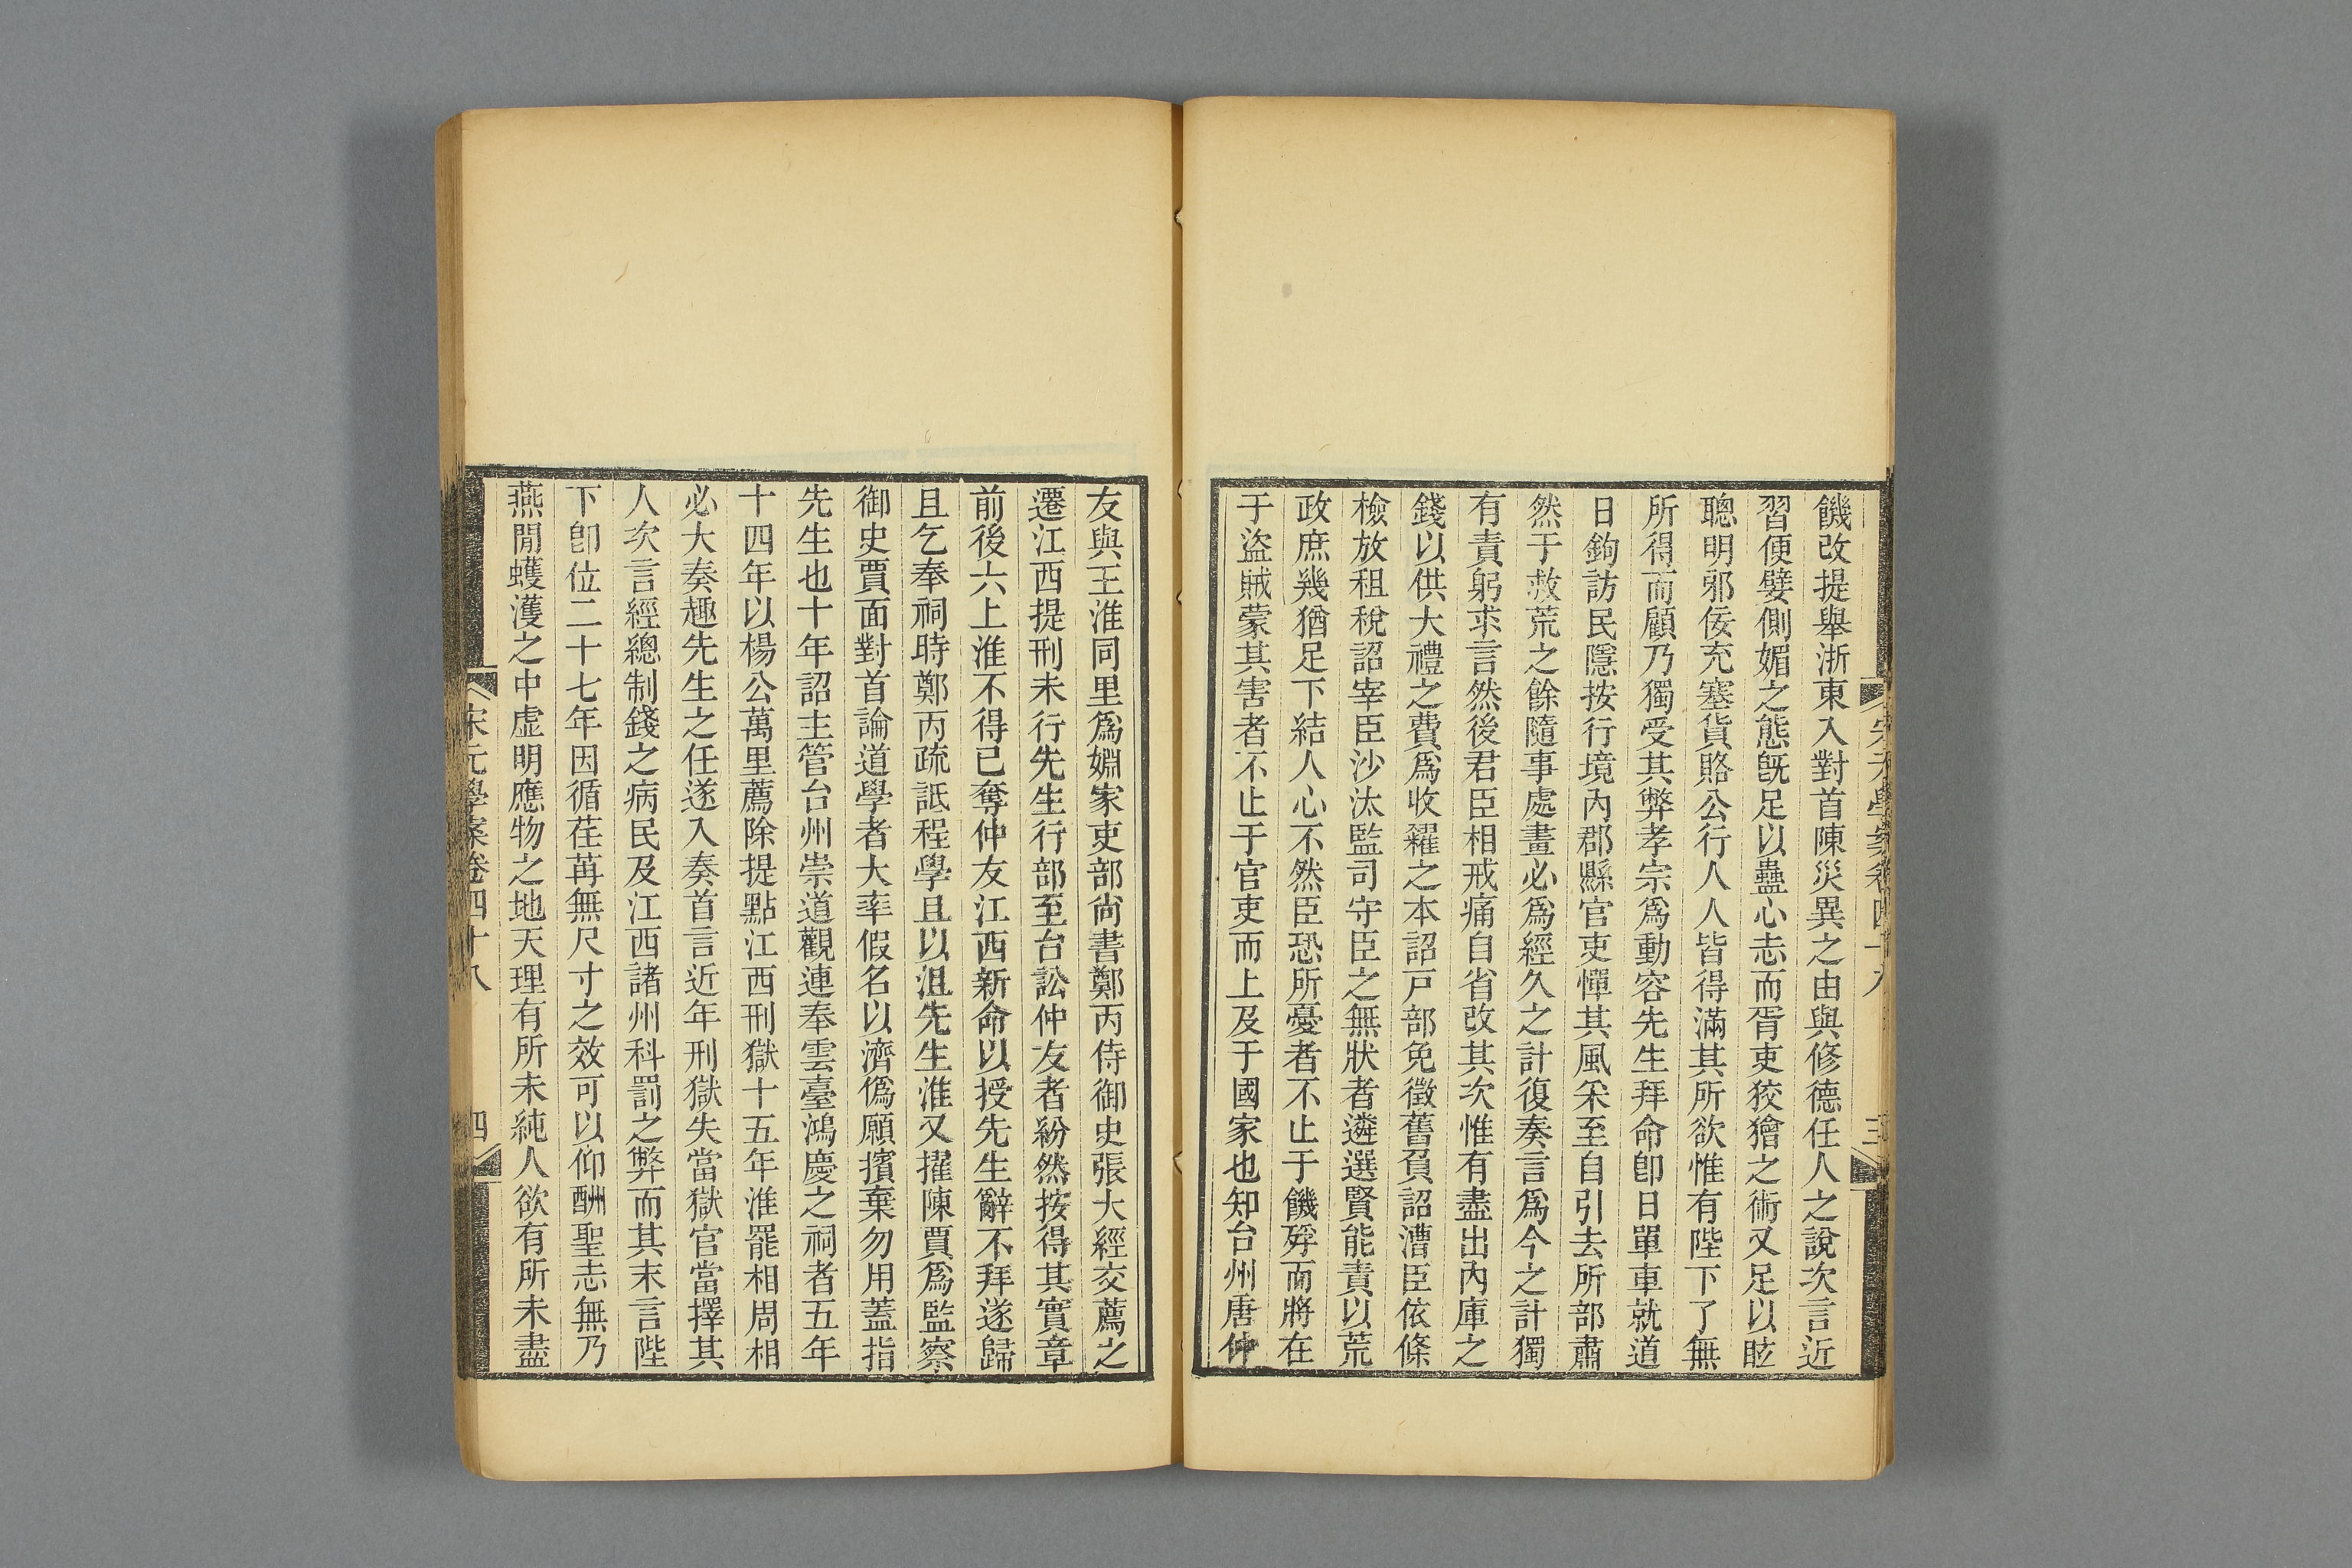 饑改提舉浙東入對首陳災異之由與修德任人之說次言近
習便嬖側媚之態旣足以蠱心志而胥吏狡獪之術又足以眩
聰明邪佞充塞貨賂公行人人皆得滿其所欲惟有陛下了無
所得而顧乃獨受其弊孝宗爲動容先生拜命卽日單車就道
日鉤訪民隱按行境內郡縣官吏憚其風采至自引去所部肅
然于救荒之餘隨事處畫必爲經久之計復奏言爲今之計獨
有責躬求言然後君臣相戒痛自省改其次惟有盡出內庫之
錢以供大禮之費爲收糴之本詔戸部免徵舊負詔漕臣依條
檢放租稅詔宰臣沙汰監司守臣之無狀者遴選賢能責以荒
政庶幾猶足下結人心不然臣恐所憂者不止于饑殍而將在
于盜賊蒙其害者不止于官吏而上及于國家也知台州唐仲
宋元學案卷四十八 三
友與王淮同里爲婣家吏部尙書鄭丙侍御史張大經交薦之
遷江西提刑未行先生行部至台訟仲友者紛然按得其實章
前後六上淮不得已奪仲友江西新命以授先生辭不拜遂歸
且乞奉祠時鄭丙疏詆程學且以沮先生淮又擢陳賈爲監察
御史賈面對首論道學者大率假名以濟僞願擯棄勿用蓋指
先生也十年詔主管台州崇道觀連奉雲臺鴻慶之祠者五年
十四年以楊公萬里薦除提點江西刑獄十五年淮罷相周相
必大奏趣先生之任遂入奏首言近年刑獄失當獄官當擇其
人次言經總制錢之病民及江西諸州科罰之弊而其末言陛
下卽位二十七年因循荏苒無尺寸之效可以仰酬聖志無乃
燕閒蠖濩之中虛明應物之地天理有所未純人欲有所未盡
宋元學案卷四十八 四